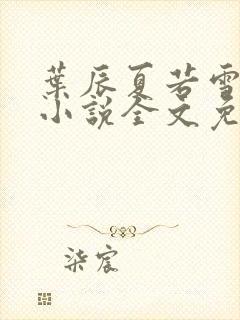 葉辰夏若雪
小說全文免
柒宸